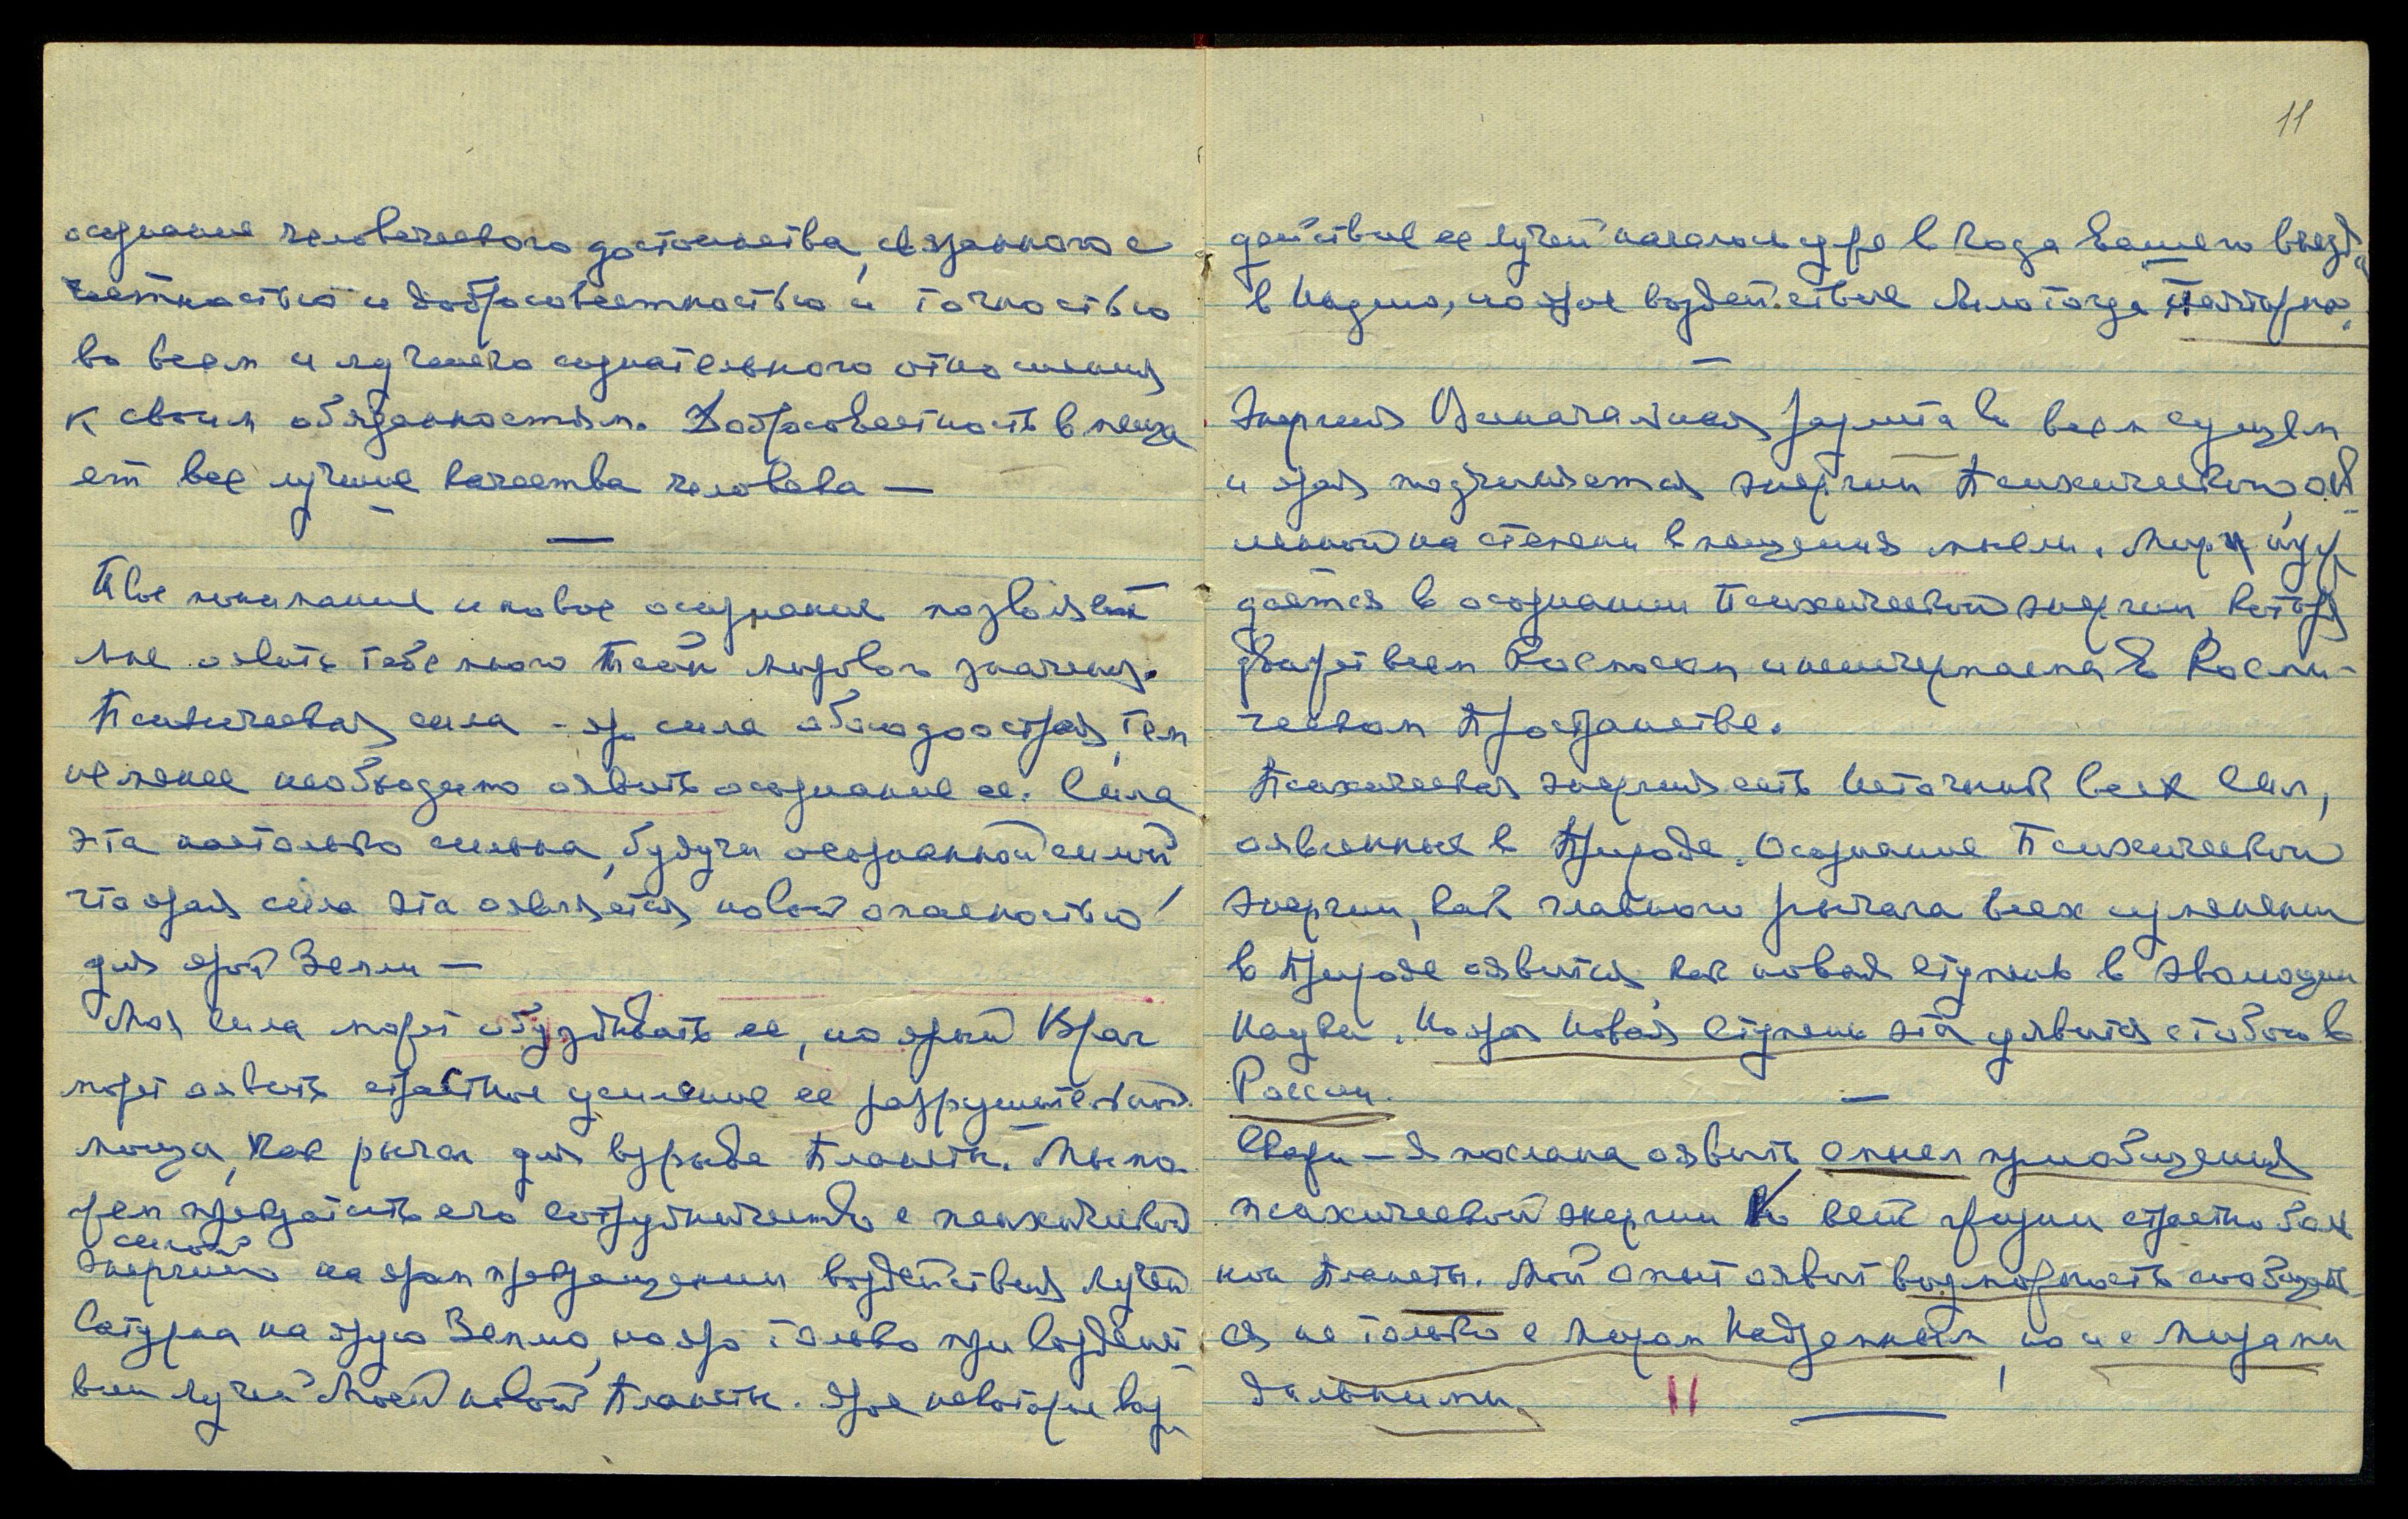 осознание человеческого достоинства, связанного с
честностью и добросовестностью и точностью
во всем и лучшего сознательного отношения
к своим обязанностям. Добросовестность вмеща
ет все лучшие качества человека —
Твое понимание и новое осознание позволяет
Мне явить тебе много Тайн мирового значения.
Психическая сила - яро сила обоюдоострая, тем
не менее необходимо явить осознание ее. Сила
эта настолько сильна, будучи осознанной силой,
что ярая сила эта является новой опасностью
для ярой Земли —
Моя Сила может обуздывать ее, но ярый Враг
может явить страстное усиление ее разрушительной
мощи, как рычаг для взрыва Планеты. Мы мо
жем прекратить его сотрудничество с психической
силой
энергией на яром прекращении воздействия Лучей
Сатурна на ярую Землю, но яро только при воздейст
вии Лучей Моей новой Планеты. Ярое некоторое воз
11
действие ее лучей началось уже в года Вашего въезда
в Индию, но ярое воздействие было тогда повторно.
Энергия Изначальная разлита во всем сущем
и ярая подчиняется энергии Психической,
на степени вмещения мысли. Мир нуж
дается в осознании Психической энергии, которая
движет всем Космосом и неисчерпаема в Косми-
ческом Пространстве.
Психическая энергия есть Источник всех Сил,
явленных в Природе. Осознание Психической
энергии, как главного рычага всех изменений
в Природе явится, как новая ступень в эволюции
Науки. Но ярая Новая Ступень эта явится с тобою в
России.
Скажи — Я послана явить опыт приобщения
психической энергии ко всей жизни страстно боль
ной Планеты. Мой Опыт явит возможность сообщать
ся не только с Миром Надземным, но и с Мирами
Дальними.